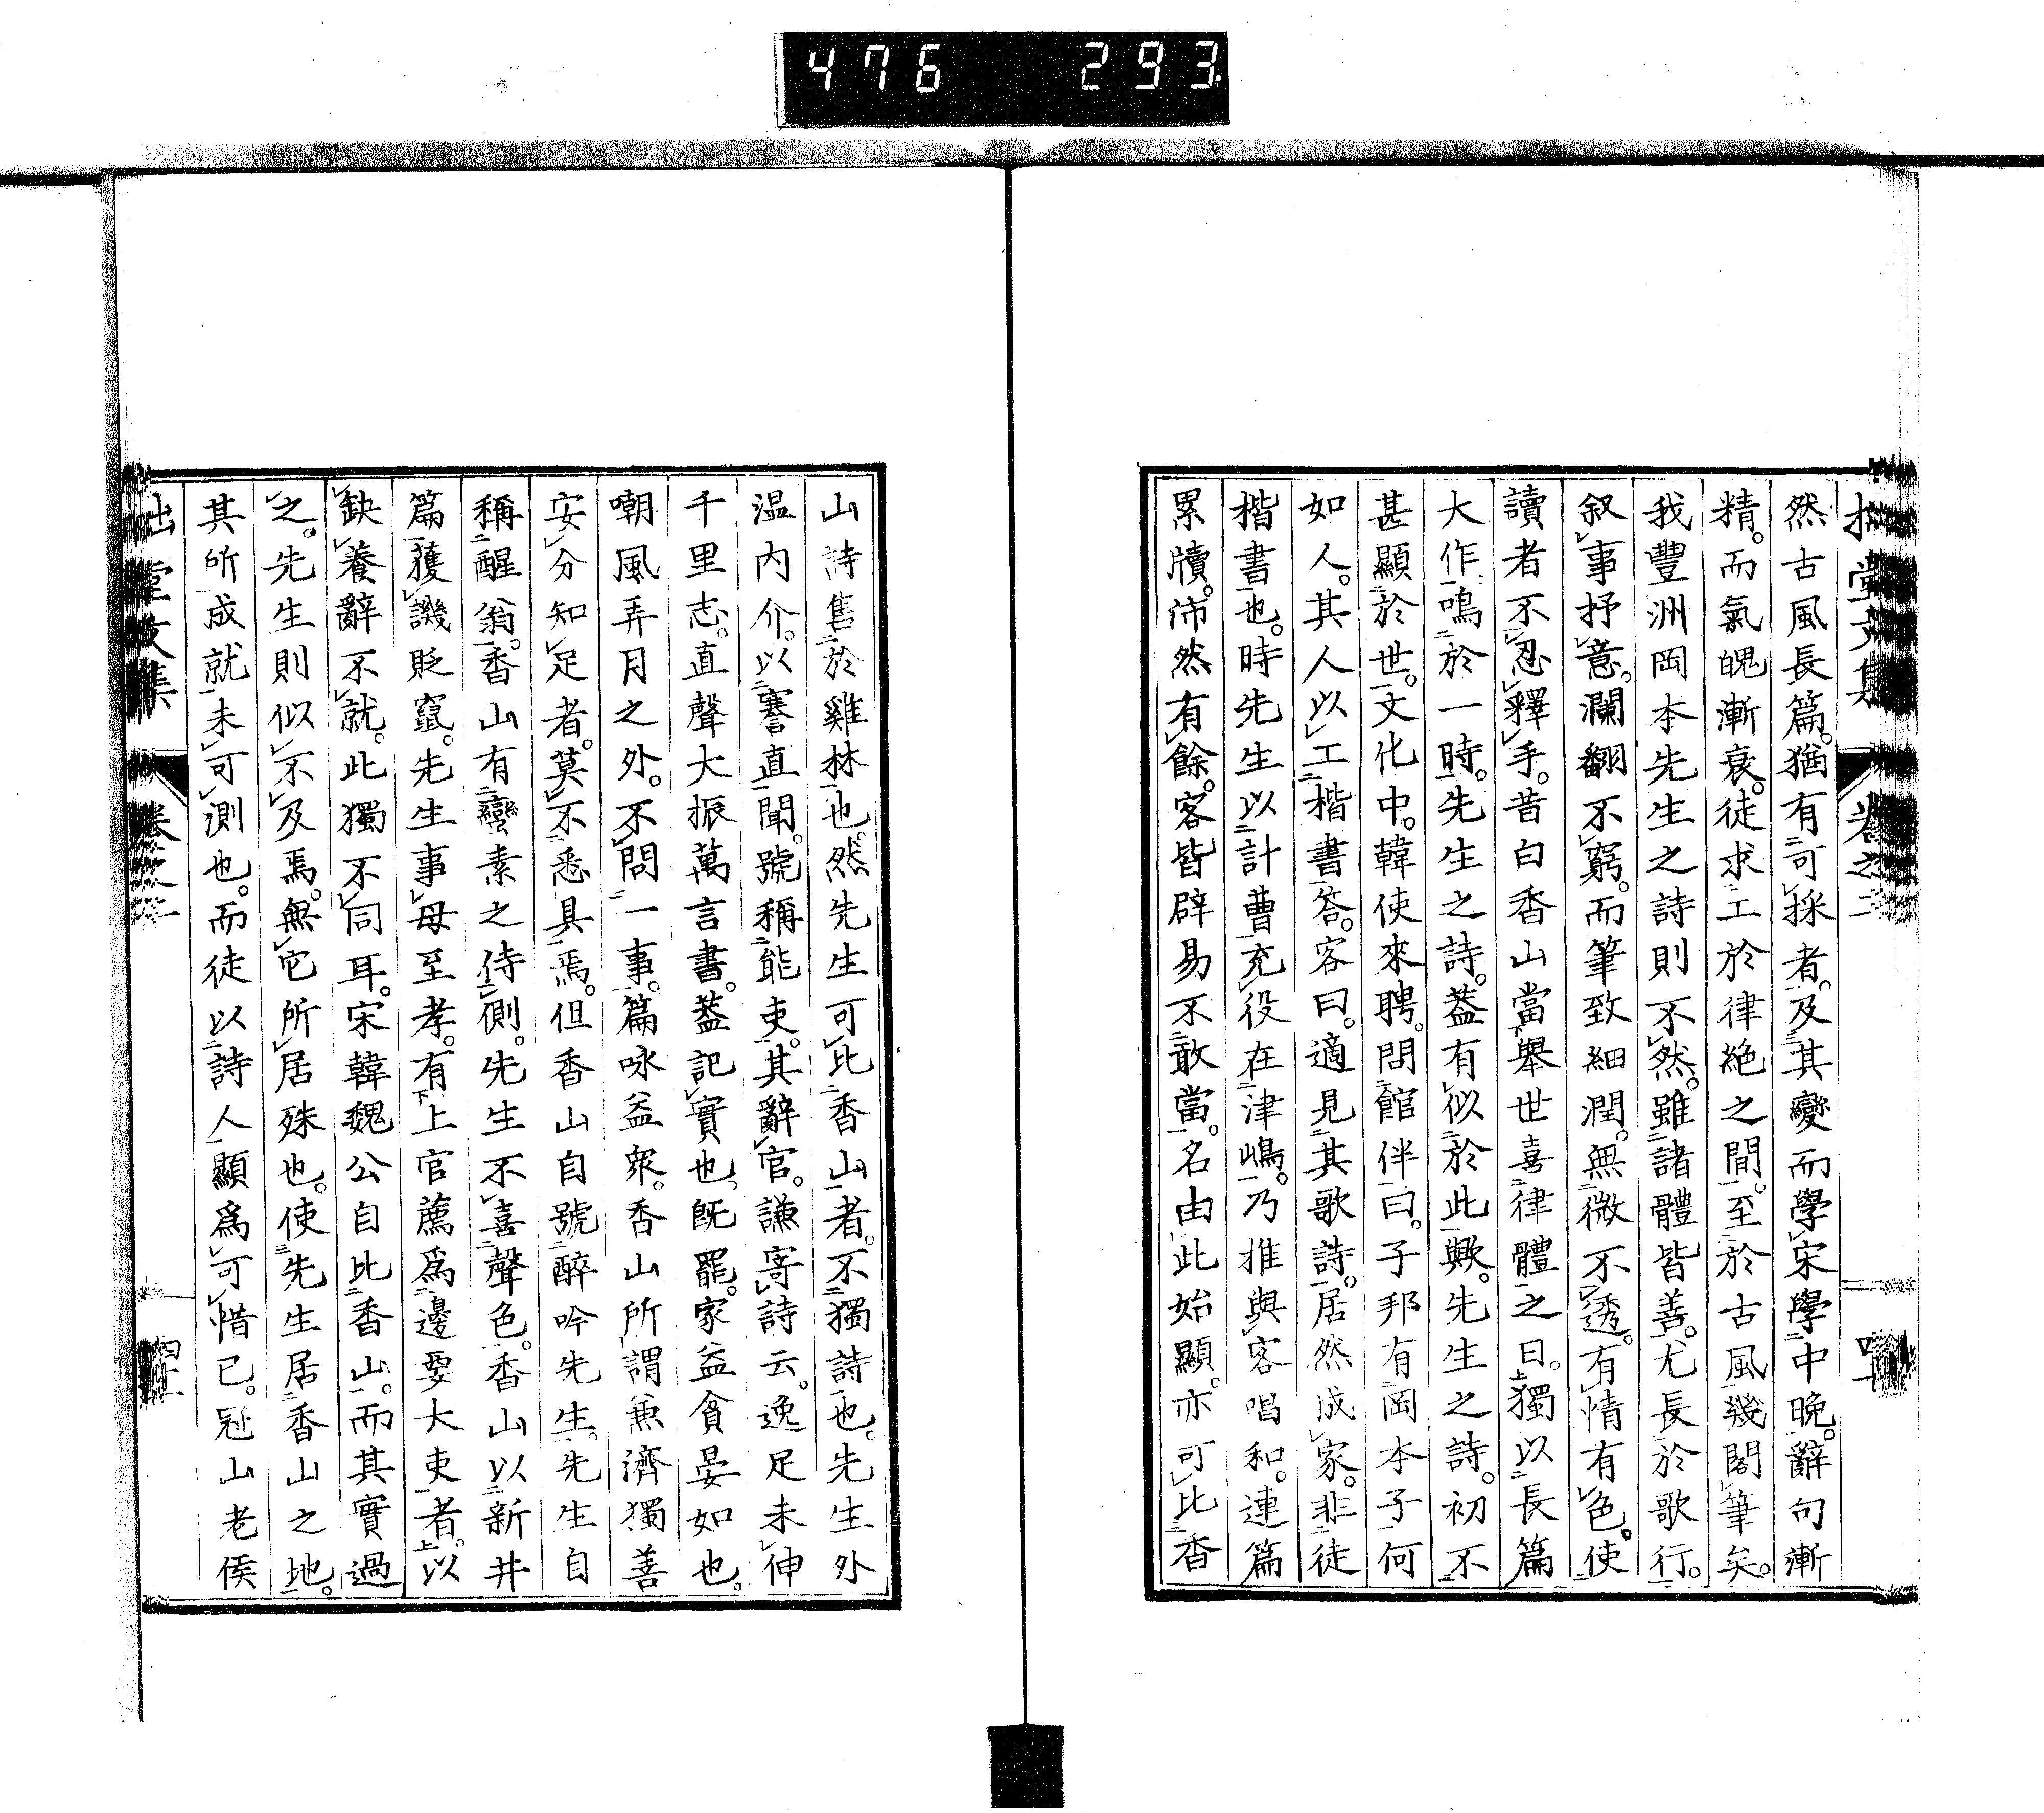 476 293
然古風長篇。猶有可採者。及其變而學宋學中晚。辭句漸
精。而氣魄漸衰。徒求工於律絶之間。至於古風幾閣筆矣。
我豐洲岡本先生之詩則不然。雖諸體皆善。尤長於歌行。
叙事抒意。瀾翻不窮。而筆致細潤。無微不透。有情有色。使
讀者不忍釋手。昔白香山當舉世喜律體之日。獨以長篇
大作鳴於一時。先生之詩。葢有似於此歟。先生之詩。初不
甚顯於世。文化中。韓使來聘。問館伴曰。子邦有岡本子何
如人。其人以工楷書答。客曰。適見其歌詩。居然成家。非徒
楷書也。時先生以計曹充役在津嶋。乃推與客唱和。連篇
累牘。沛然有餘。客皆辟易不敢當。名由此始顯。亦可比香
山詩售於雞林也。然先生可比香山者。不獨詩也。先生外
温內介。以謇直聞。號稱能吏。其辭官。謙寄詩云。逸足未伸
千里志。直聲大振萬言書。葢記實也。既罷。家益貧晏如也。
嘲風弄月之外。不問一事。篇咏益衆。香山所謂兼濟獨善
安分知足者。莫不悉具焉。但香山自號醉吟先生。先生自
稱醒翁。香山有蠻素之侍側。先生不喜聲色。香山以新井
篇獲譏貶竄。先生事母至孝。有上官薦爲邊要大吏者。以
缺養辭不就。此獨不同耳。宋韓魏公自比香山。而其實過
之。先生則似不及焉。無它所居殊也。使先生居香山之地。
其所成就未可測也。而徒以詩人顯爲可惜已。冠山老侯
拙堂文集 卷之二 四十二